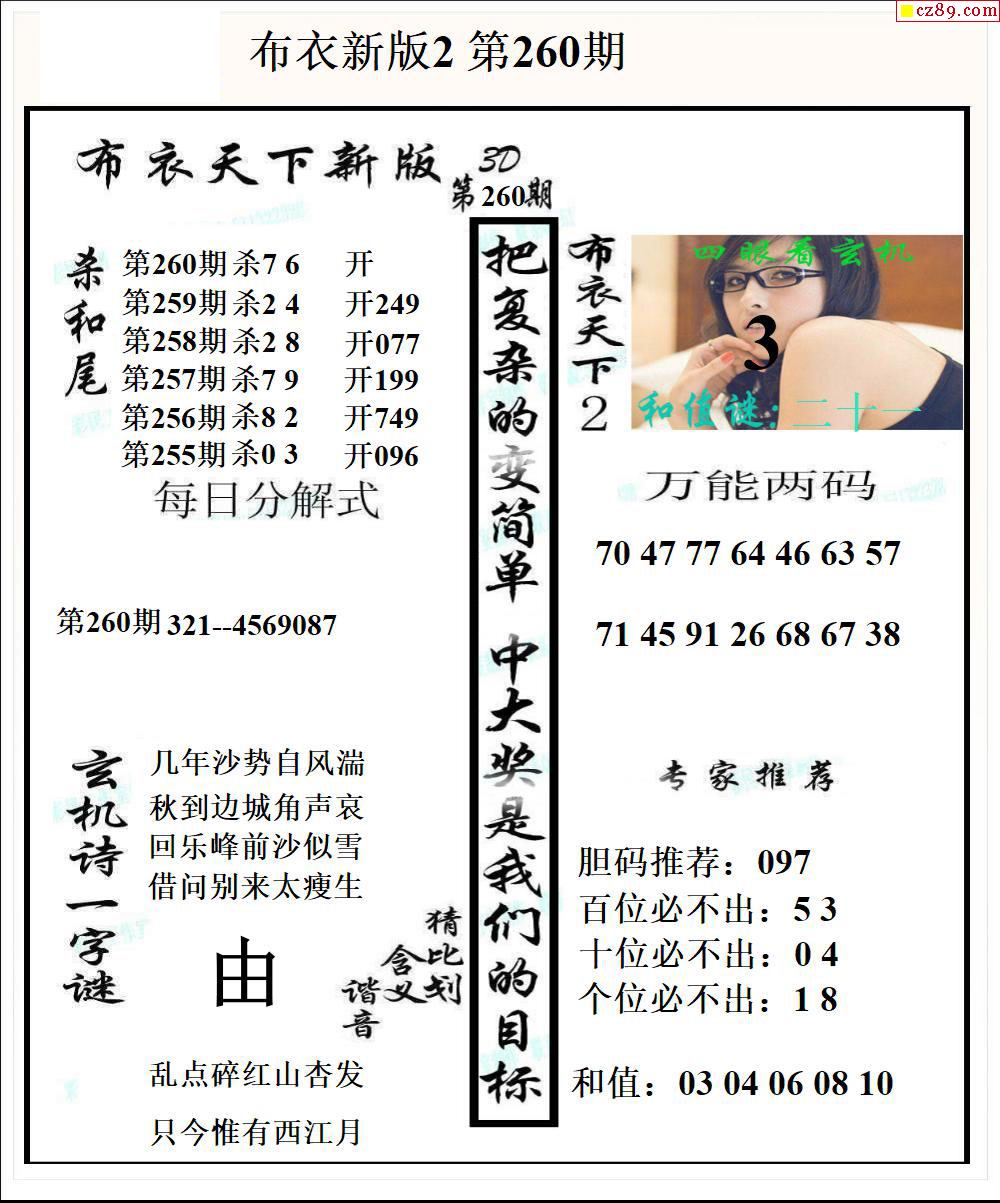 cz89.com
布衣新版2 第260期
布衣天下新版 3D
第260期
杀和尾
第260期 杀7 6 开
第259期 杀2 4 开249
第258期 杀2 8 开077
第257期 杀7 9 开199
第256期 杀8 2 开749
第255期 杀0 3 开096
每日分解式
第260期 321--4569087
玄机诗一字谜
几年沙势自风湍
秋到边城角声哀
回乐峰前沙似雪
借问别来太瘦生
由
猜比划
含义
谐音
乱点碎红山杏发
只今惟有西江月
把复杂的变简单 中大奖是我们的目标
布衣天下2
四眼看玄机
3
和值谜:二十一
万能两码
70 47 77 64 46 63 57
71 45 91 26 68 67 38
专家推荐
胆码推荐：097
百位必不出：5 3
十位必不出：0 4
个位必不出：1 8
和值：03 04 06 08 10